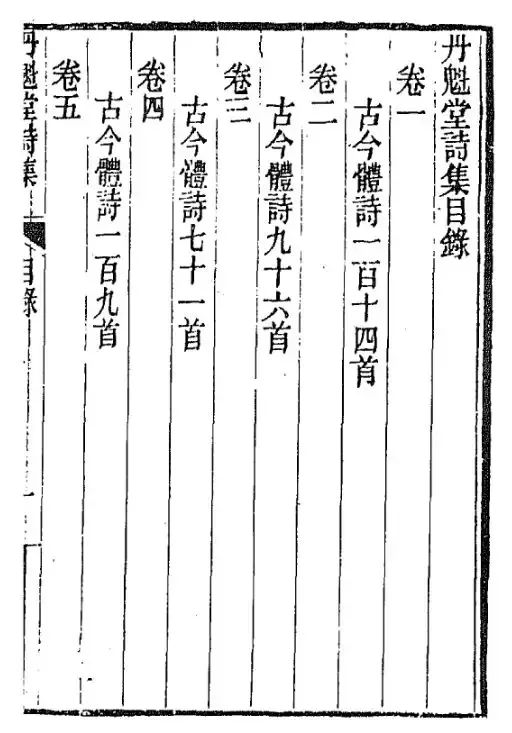 丹魁堂詩集目錄
卷一
古今體詩一百十四首
卷二
古今體詩九十六首
卷三
古今體詩七十一首
卷四
古今體詩一百九首
卷五
丹魁堂詩集 目錄